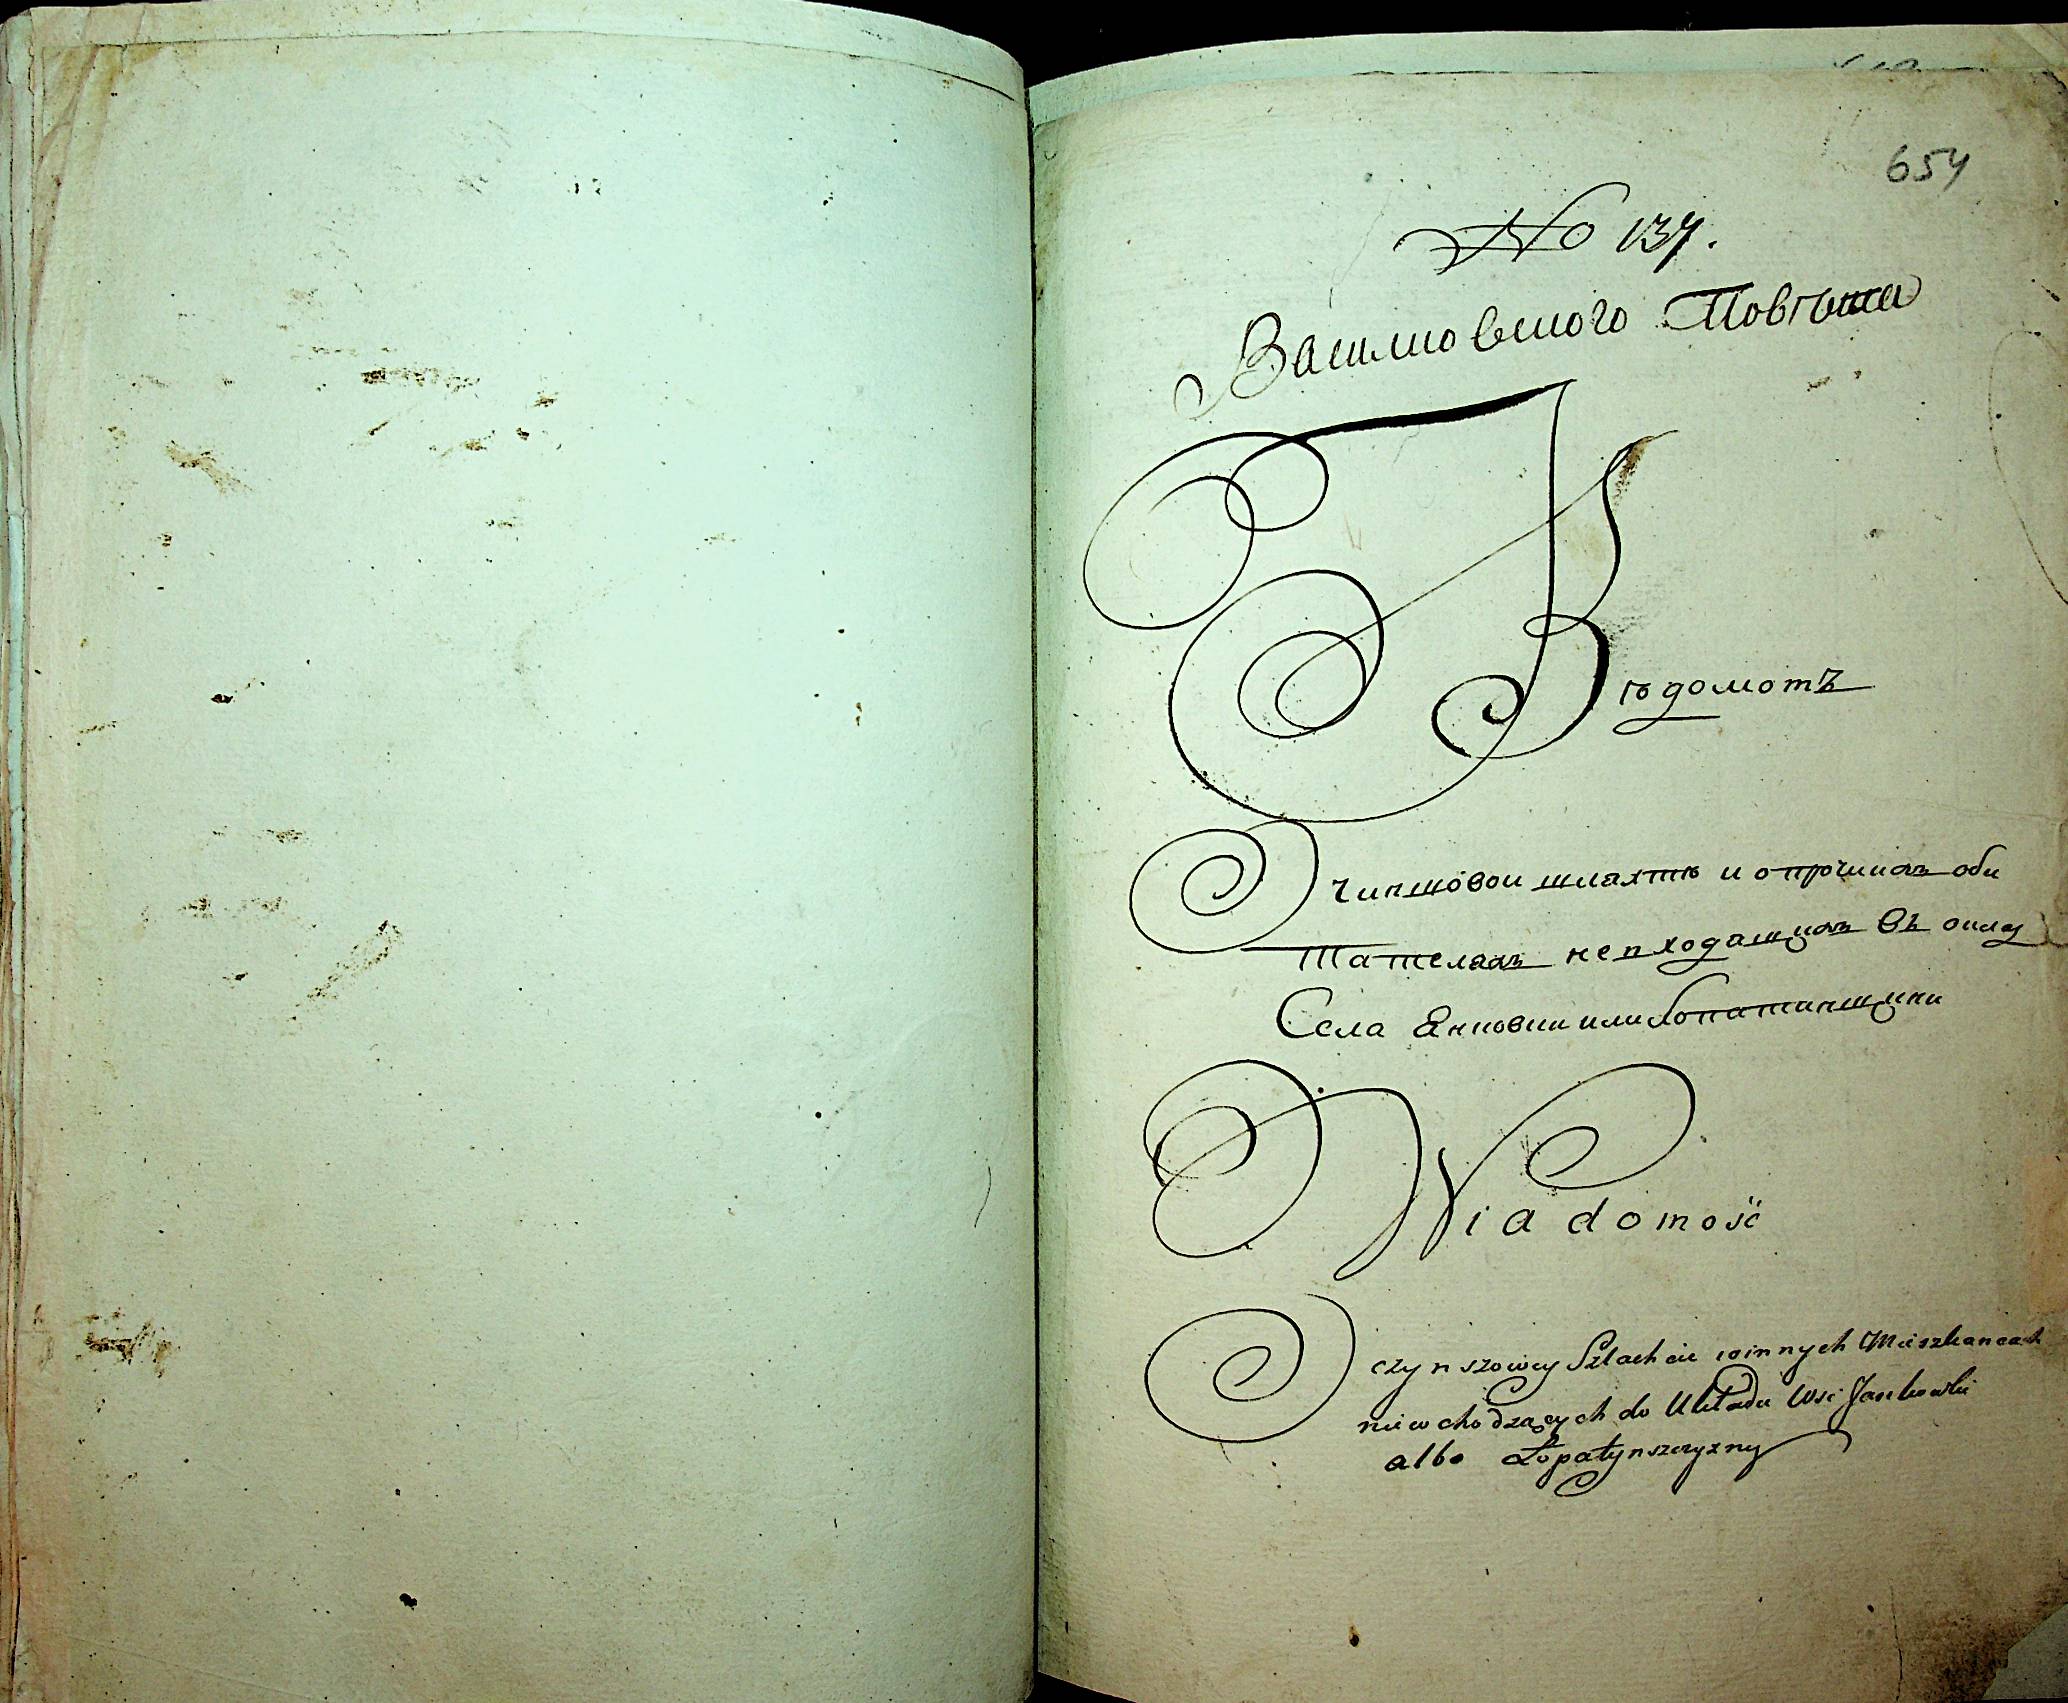 654
No 137.
Василковского Повѣта
Вѣдомотъ
О чиншовои шляхтѣ и опрочихъ оби
тателяхъ невходящихъ въ окла
Села Янковки или Лопатинщини
Wiadomość
O czynszowey Szlachcie i innych Mieszkancach
nie wchodzących do Układu Wsi Jankowki
albo Łopatynszczyzny